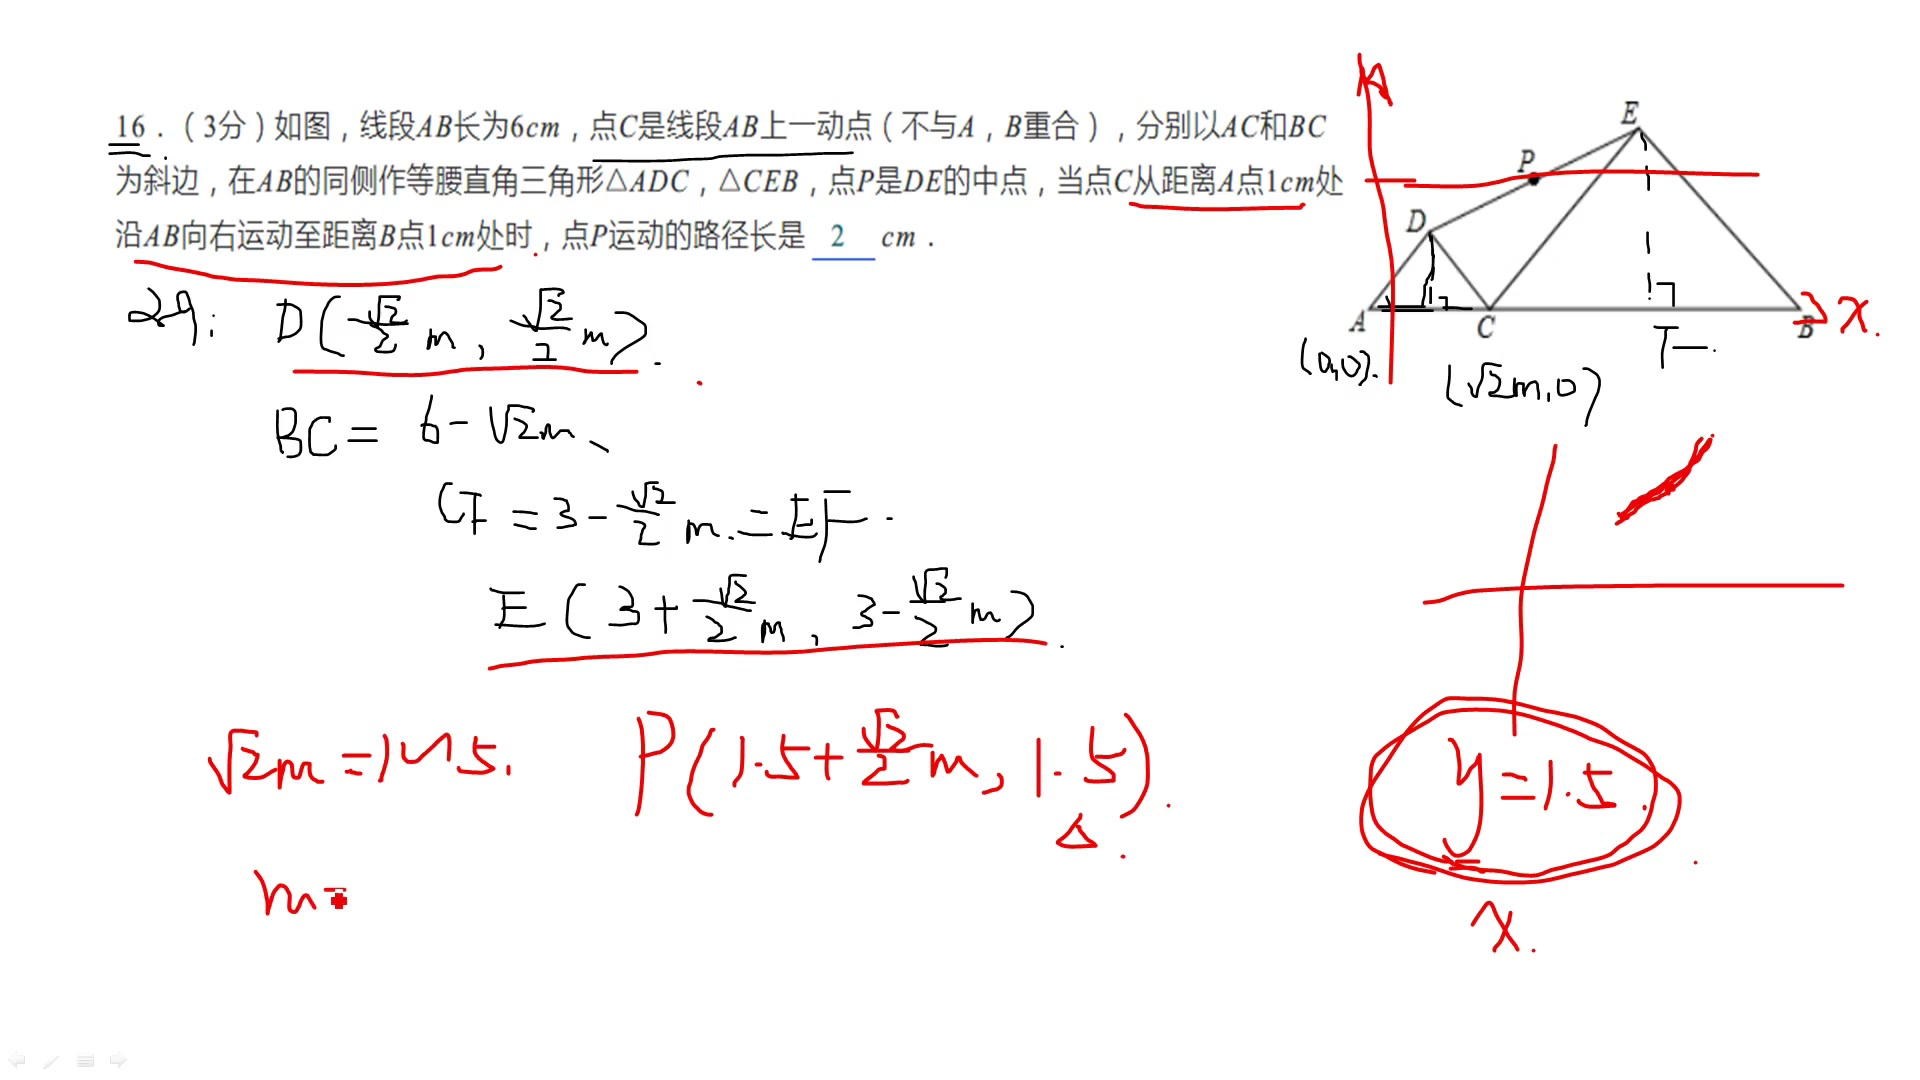 16.（3分）如图，线段AB长为6cm，点C是线段AB上一动点（不与A，B重合），分别以AC和BC
为斜边，在AB的同侧作等腰直角三角形△ADC，△CEB，点P是DE的中点，当点C从距离A点1cm处
沿AB向右运动至距离B点1cm处时，点P运动的路径长是 2 cm．
E
P
D
A
C
B
x.
(0,0).
(√2m,0)
D(√2/2 m, √2/2 m).
BC = 6-√2m、
CF = 3-√2/2 m. = EF.
E(3+√2/2 m, 3-√2/2 m).
√2m = 1~5.
P(1.5+√2/2 m, 1.5).
y=1.5
m=
x.